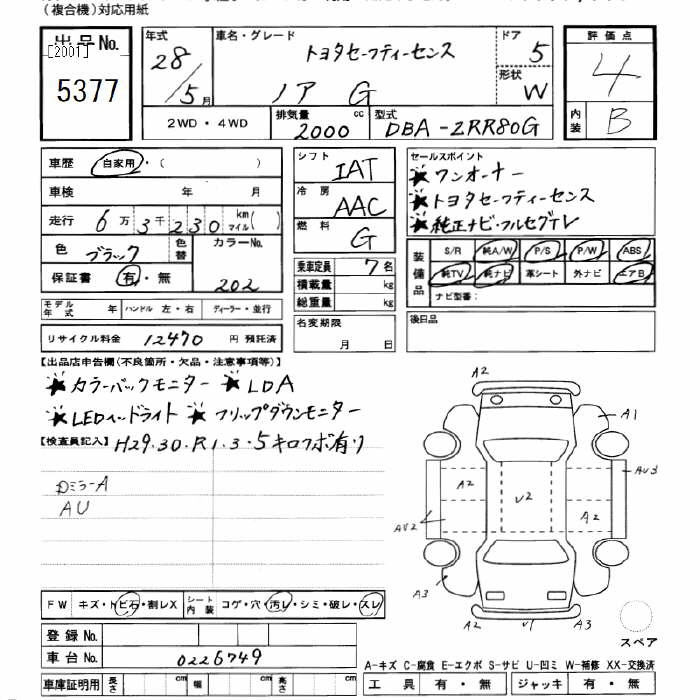 (複合機)対応用紙
出品No.
[2001]
5377
年式
28/5月
車名・グレード
トヨタセーフティーセンス
ノア G
ドア
5
形状
W
評価点
4
内装
B
2WD・4WD
排気量 2000 cc
型式 DBA-ZRR80G
車歴 自家用・( )
車検 年 月
走行 6万3千230 km マイル( )
色 ブラック 色替
カラーNo. 202
保証書 有・無
モデル年式 年 ハンドル 左・右 ディーラー・並行
リサイクル料金 12470 円 預託済
シフト IAT
冷房 AAC
燃料 G
乗車定員 7名
積載量 kg
総重量 kg
名変期限
月 日
セールスポイント
★ワンオーナー
★トヨタセーフティーセンス
★純正ナビ・フルセグTV
装備品
S/R 純A/W P/S P/W ABS
純TV 純ナビ 革シート 外ナビ エアB
ナビ型番:
後日品
【出品店申告欄(不良箇所・欠品・注意事項等)】
★カラーバックモニター ★LDA
★LEDヘッドライト ★フリップダウンモニター
【検査員記入】 H29.30.R1.3.5キロクボ有り
ロミラーA
AU
A2
A1
A2
AU3
V2
A2
AU2
A3
A2
V1
A3
スペア
FW キズ・トビ石・割レX
シート内装 コゲ・穴・汚レ・シミ・破レ・スレ
登録No.
車台No. 0226749
車庫証明用 長さ cm 幅 cm 高さ cm
A-キズ C-腐食 E-エクボ S-サビ U-凹ミ W-補修 XX-交換済
工具 有・無 ジャッキ 有・無